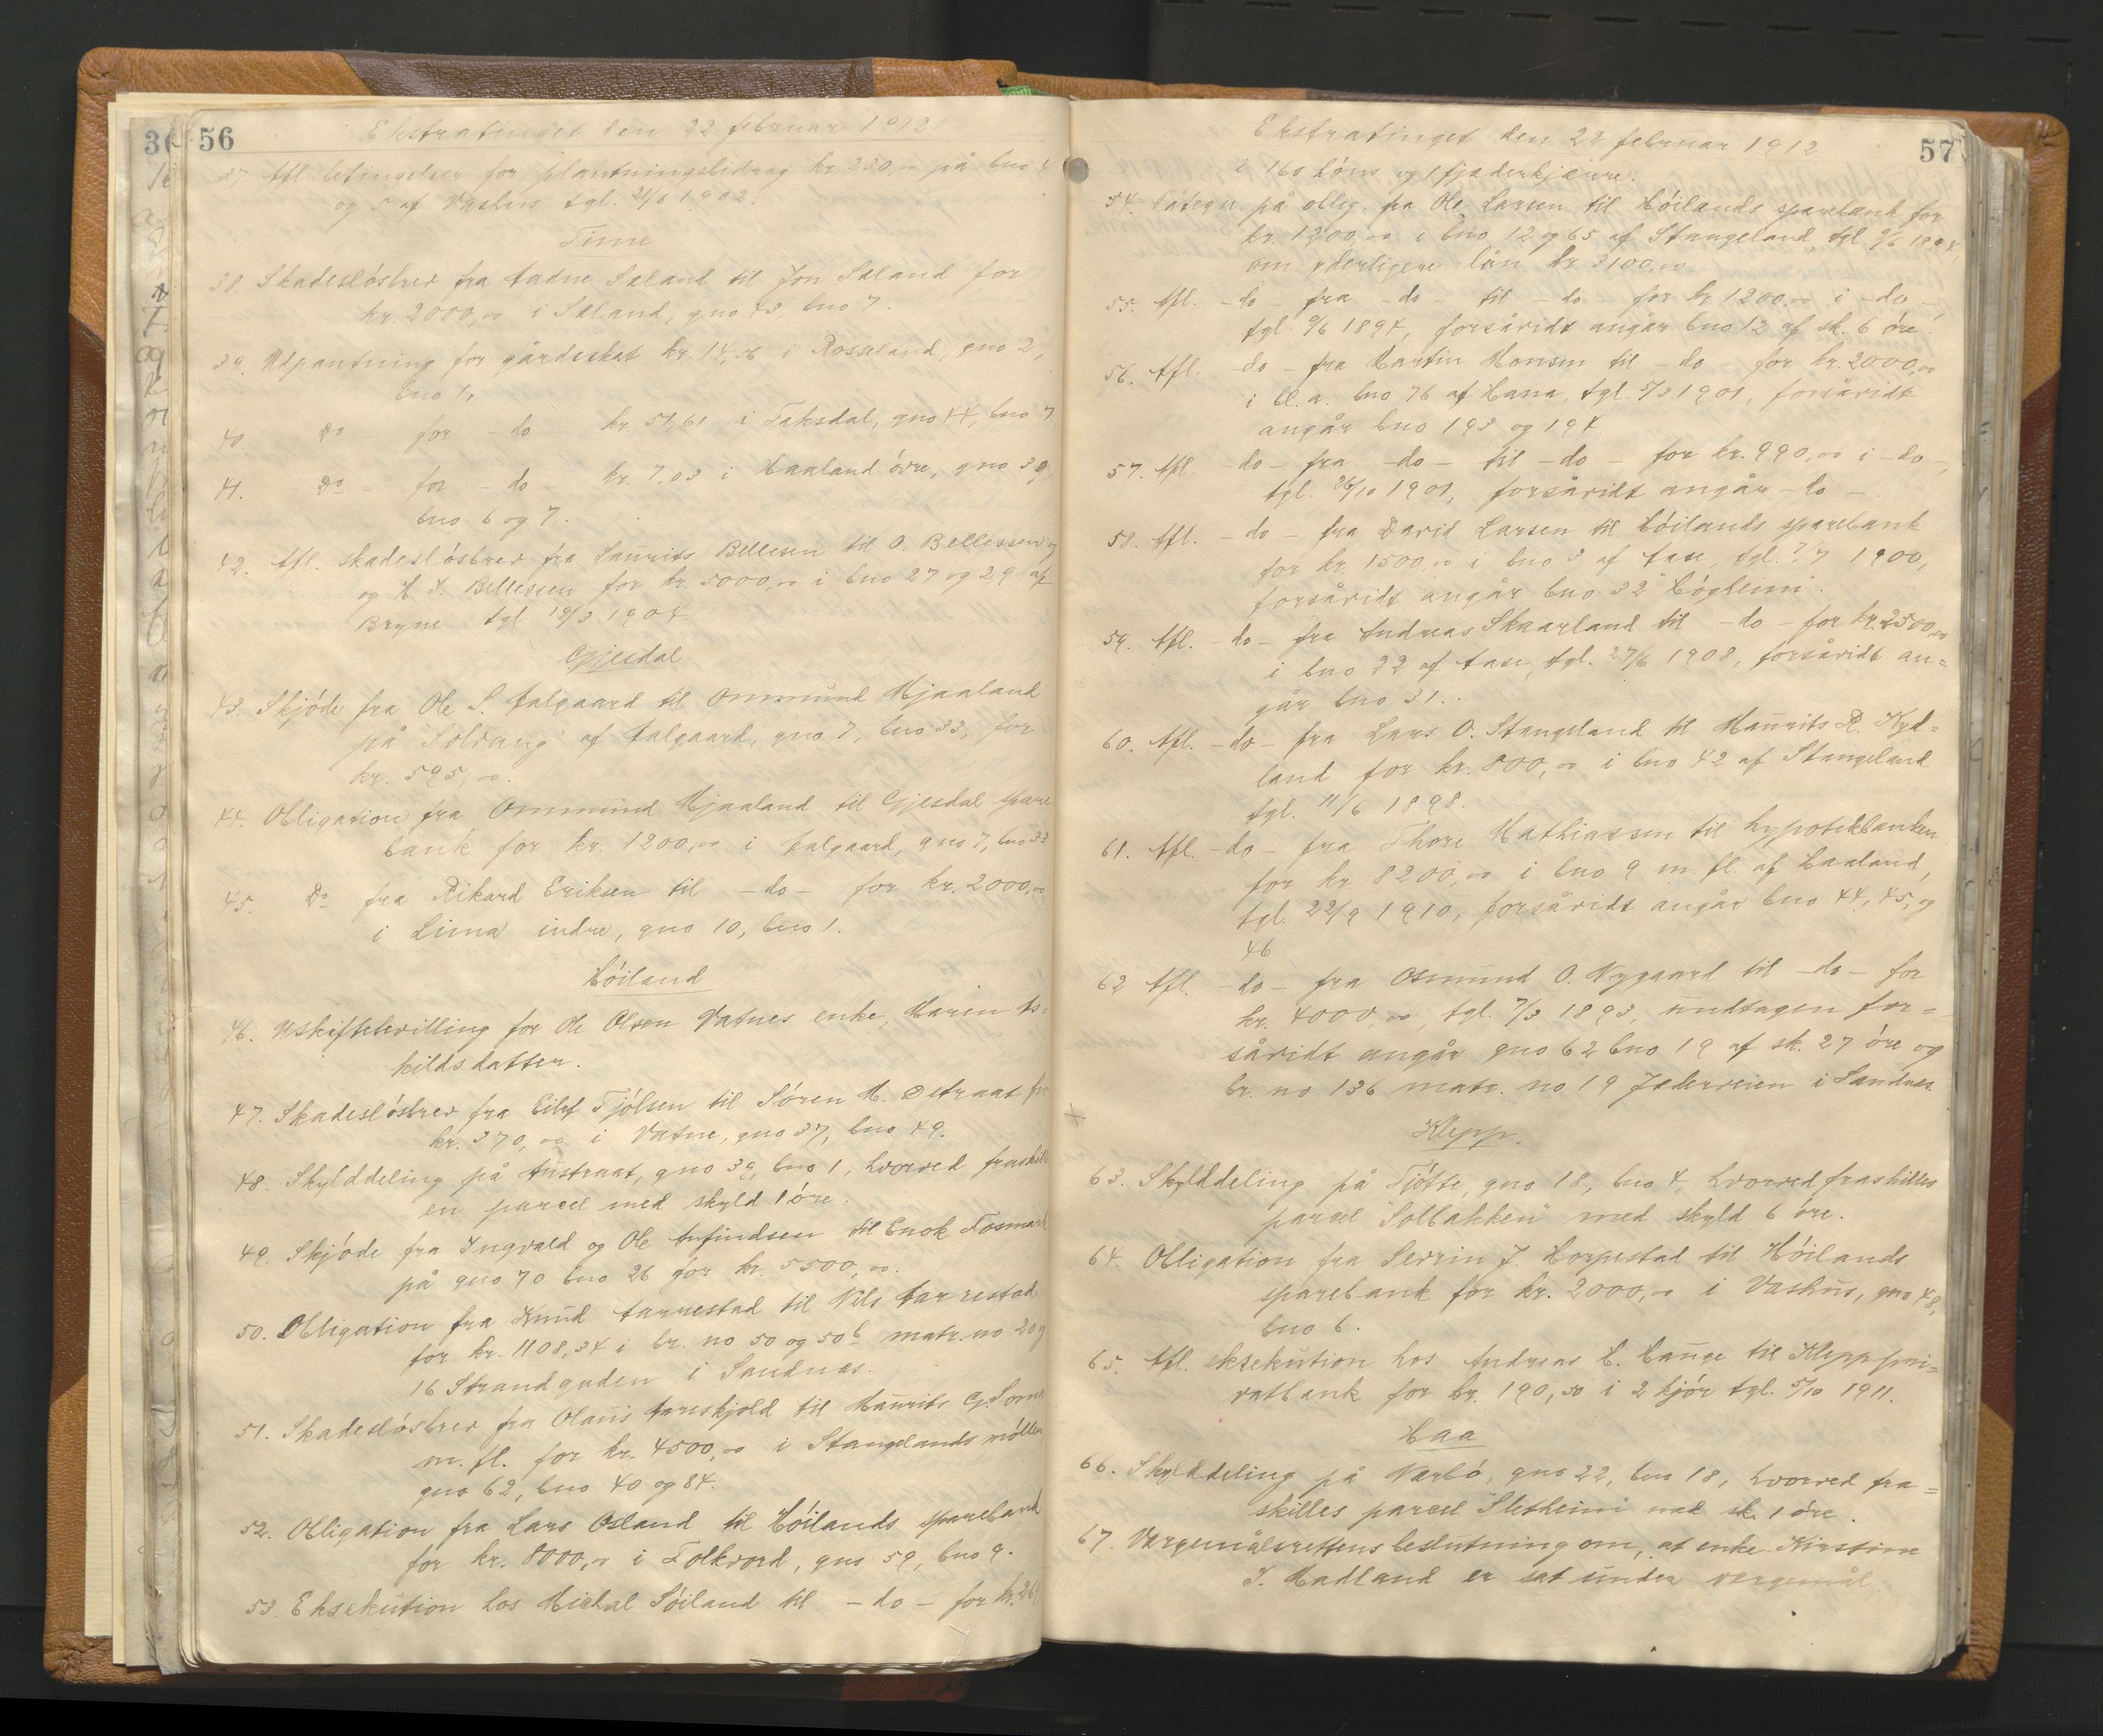 56
Ekstratinget den 22 februar 1912
37. Afl. betingelser for plantningsbidrag kr. 230,00 på bno 4
og 5 af Vashus tgl. 21/6 1902.
Time
38. Skadesløsbrev fra Aadne Saland til Jon Saland for
kr. 2000,00 i Saland, gno 43, bno 7.
39. Udpantning for gårdsskat kr. 14,36 i Rosseland, gno 2,
bno 1,
40. Do for - do - kr. 51,61 i Taksdal, gno 44, bno 7
41. Do for - do - kr. 7,03 i Haaland øvre, gno 39,
bno 6 og 7.
42. Afl. skadesløsbrev fra Laurits Bellesen til O. Bellessen og
og H. I. Bellessen for kr. 5000,00 i bno 27 og 29 af
Bryne tgl 19/3 1904.
Gjesdal
43. Skjøde fra Ole S. Aalgaard til Ommund Mjaaland
på "Solvang" af Aalgaard, gno 7, bno 33, for
kr. 595,00.
44. Obligation fra Ommund Mjaaland til Gjesdal spare
bank for kr. 1200,00 i Aalgaard, gno 7, bno 33
45. Do fra Rikard Eriksen til - do - for kr. 2000,00
i Lima indre, gno 10, bno 1.
Høiland
46. Uskiftebevilling for Ole Olsen Vatnes enke, Maren As-
kildsdatter.
47. Skadesløsbrev fra Eilef Fjølsen til Søren M. Østraat for
kr. 370,00 i Vatne, gno 37, bno 49.
48. Skylddeling på Austraat, gno 39, bno 1, hvorved fraskilles
en parcel med skyld 1 øre.
49. Skjøde fra Ingvald og Ole Anfindsen til Enok Fosmark
på gno 70 bno 26 for kr. 5500,00.
50. Obligation fra Knud Aarrestad til Nils Aarrestad
for kr. 1108,34 i br. no 50 og 50b matr. no 20 og
16 Strandgaden i Sandnæs.
51. Skadesløsbrev fra Olaus Aareskjold til Maurits G. Somme
m. fl. for kr. 4500,00 i Stangelands møller
gno 62, bno 40 og 84.
52. Obligation fra Lars Osland til Høilands sparebank
for kr. 8000,00 i Folkvord, gno 59, bno 9.
53. Eksekution hos Michal Søiland til - do - for kr.
57
Ekstratinget den 22 februar 1912
i 160 høns og 1 fjæderkjærre.
54. Påtegn på oblig. fra Ole Larsen til Høilands sparebank for
kr. 1200,00 i bno 12 og 65 af Stangeland, tgl. 9/6 1894,
om yderligere lån kr 3100,00
55. Afl. - do - fra - do - til - do - for kr 1200,00 i - do -
tgl. 9/6 1894, forsåvidt angår bno 12 af sk. 6 øre.
56. Afl. - do - fra Martin Monsen til - do - for kr. 2000,00
i bl. a. bno 76 af Hana, tgl. 5/3 1901, forsåvidt
angår bno 193 og 194.
57. Afl - do - fra - do - til - do - for kr. 990,00 i - do -,
tgl. 26/10 1901, forsåvidt angår - do -.
58. Afl. - do - fra David Larsen til Høilands sparebank
for kr. 1500,00 i bno 3 af Aase, tgl. 7/7 1900,
forsåvidt angår bno 32 "Høgheim".
59. Afl. - do - fra Andreas Skaarland til - do - for kr. 2500,00
i bno 22 af Aase, tgl. 27/6 1908, forsåvidt an-
går bno 31.
60. Afl. - do - fra Lars O. Stangeland til Maurits R. Kyd-
land for kr. 800,00 i bno 42 af Stangeland
tgl. 11/6 1898.
61. Afl. - do - fra Thore Mathiassen til hypotekbanken
for kr. 8200,00 i bno 9 m. fl. af Haaland,
tgl. 22/9 1910, forsåvidt angår bno 44, 45, og
46
62 Afl. - do - fra Osmund O. Nygaard til - do - for
kr. 4000,00, tgl. 7/3 1893, undtagen for-
såvidt angår gno 62 bno 19 af sk. 27 øre og
br. no 136 matr. no 19 Jæderveien i Sandnes.
Klepp.
63. Skylddeling på Tjøtte, gno 18, bno 4, hvorved fraskilles
parcel "Solbakken" med skyld 6 øre.
64. Obligation fra Severin J. Horpestad til Høilands
sparebank for kr. 2000,00 i Vashus, gno 48,
bno 6.
65. Afl. eksekution hos Andreas H. Hauge til Klepp pri-
vatbank for kr. 190,50 i 2 kjør tgl. 5/10 1911.
Haa
66. Skylddeling på Narbø, gno 22, bno 18, hvorved fra-
skilles parcel "Sletheim" med sk. 1 øre.
67. Vergemålsrettens beslutning om, at enke Kirstine
I. Madland er sat under vergemål.